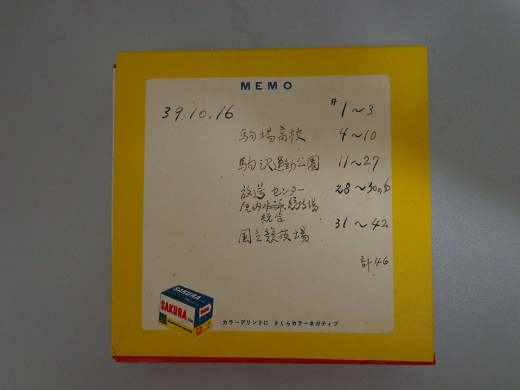 MEMO
39.10.16 #1~3
駒場高校 4~10
駒沢運動公園 11~27
放送センター 28~30の6
屋内水泳競技場
国立競技場 31~42
計46
SAKURA
カラープリントに さくらカラーネガティブ